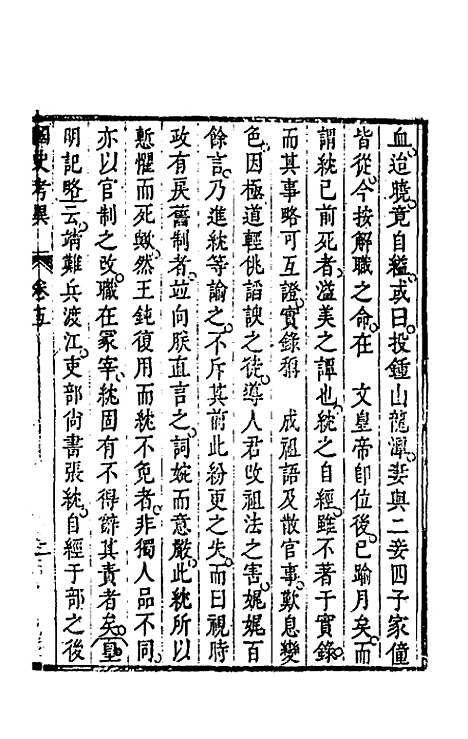 血迨曉竟自縊或曰投鍾山龍潭妻與二妾四子家僮
皆從今按解職之命在　文皇帝卽位後已踰月矣而
謂紞已前死者溢美之譚也紞之自經雖不著于實錄
而其事略可互證實錄稱　成祖語及散官事歎息變
色因極道輕佻謟諛之徒導人君改祖法之害娓娓百
餘言乃進紞等諭之不斥其前此紛更之失而曰視時
政有戾舊制者竝向朕直言之詞婉而意嚴此紞所以
慙懼而死歟然王鈍復用而紞不免者非獨人品不同
亦以官制之改職在冢宰紞固有不得辭其責者矣皇
明記略云靖難兵渡江吏部尚書張紞自經于部之後
國史考異　卷之五